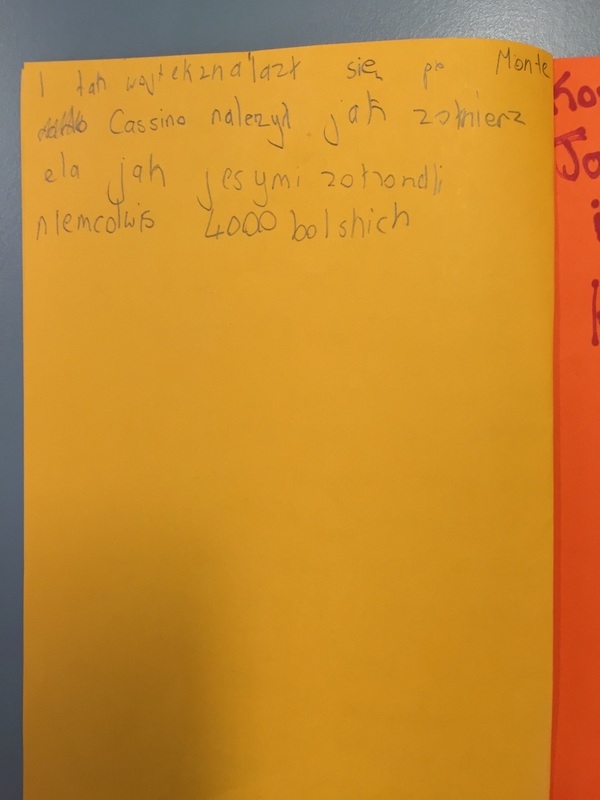 I tak wojtek znalazł się po Monte
Cassino należył jak żołnierz
ela jak jesymi zotrondli
niemcolwis 4000 bolshich
Ko
Ja
i
k